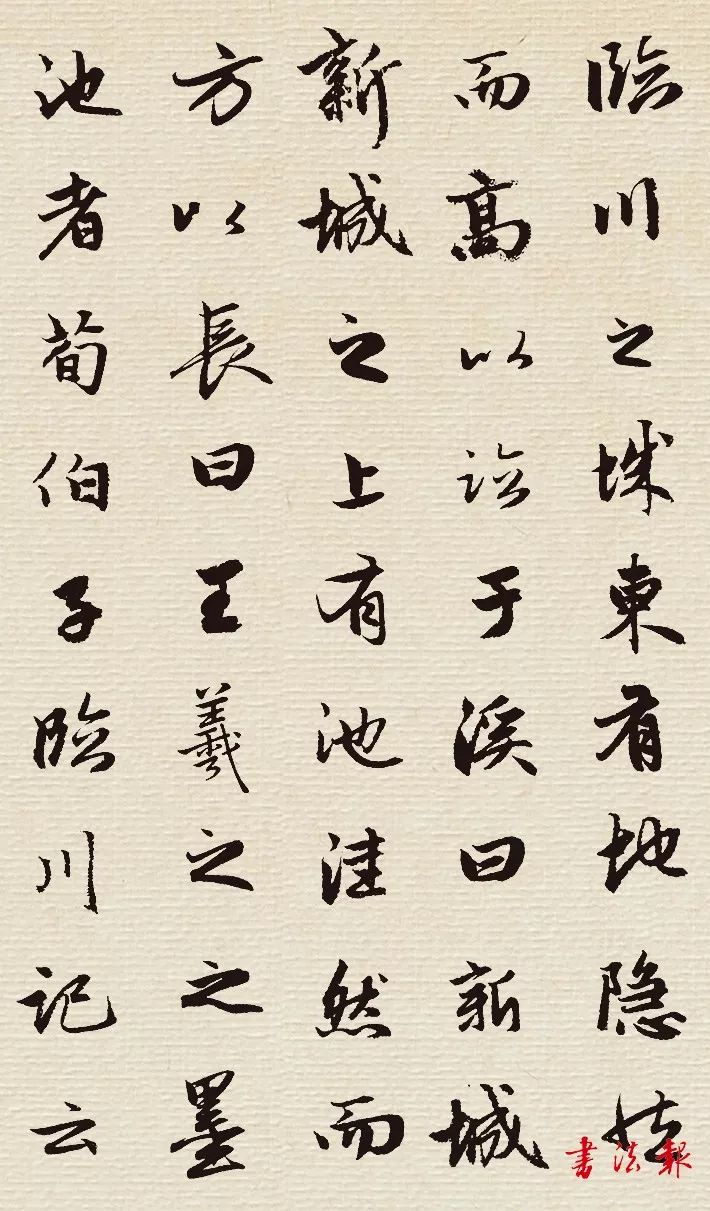 臨川之城東有地隐然
而高以臨于溪曰新城
新城之上有池洼然而
方以長曰王羲之之墨
池者荀伯子臨川記云
書法報